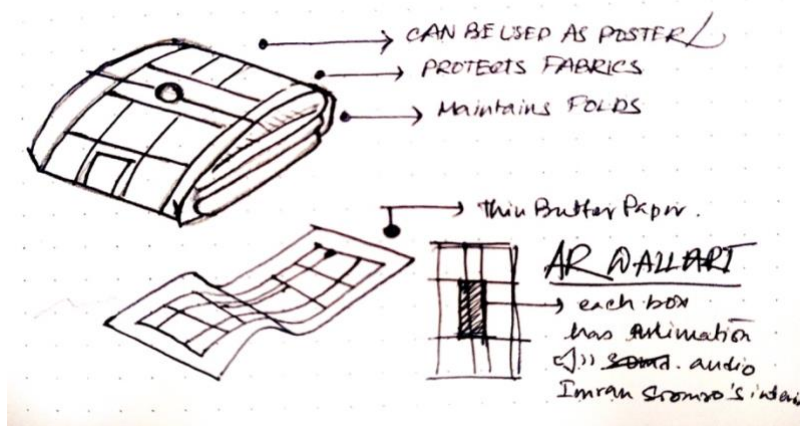 CAN BE USED AS POSTER
PROTECTS FABRICS
Maintains FOLDS
thin Butter Paper.
AR WALL ART
each box
has Animation
audio
Imran